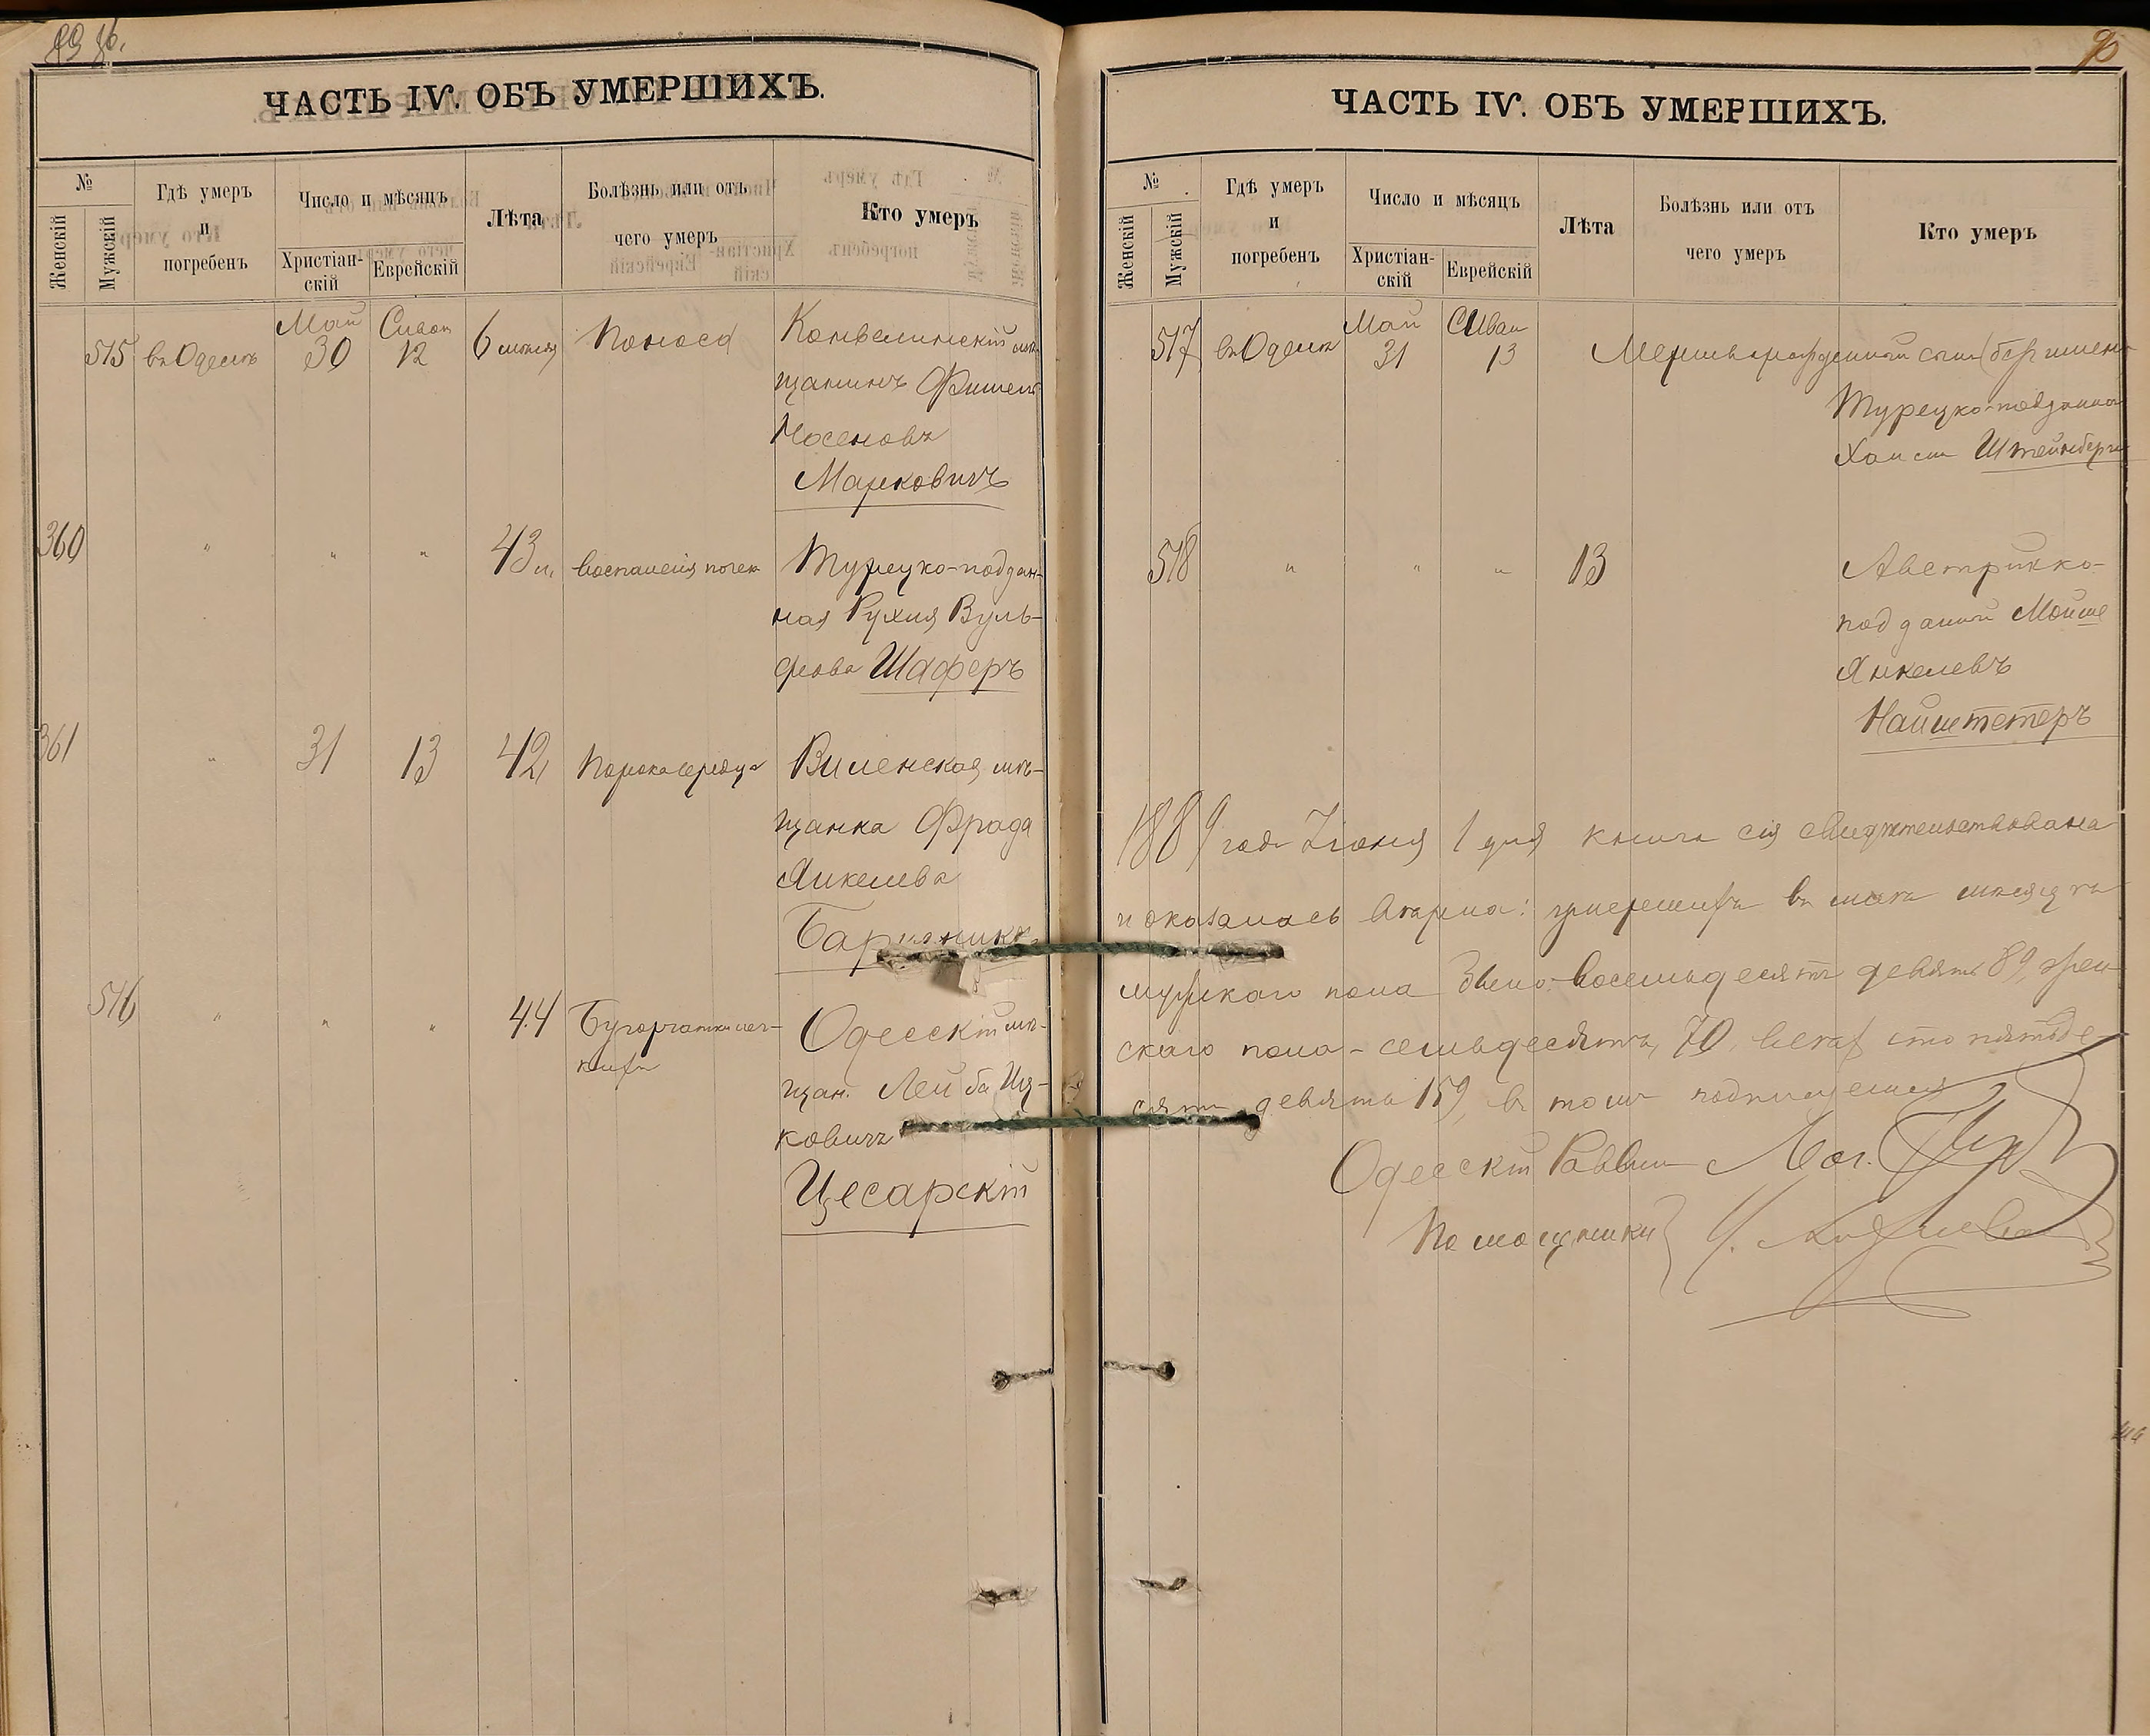 ЧАСТЬ IV. ОБЪ УМЕРШИХЪ.
№
Женскій
Мужскій
Гдѣ умеръ
и
погребенъ
Число и мѣсяцъ
Христіан-
скій
Еврейскій
Лѣта
Болѣзнь или отъ
чего умеръ
Кто умеръ
515 въ Одессѣ Май 30 Сиван 12 6 Поноса
щанинъ Фишель
Іосеновъ
Марковичъ
360 " " " 43 воспаленія почек Турецко-поддан-
ная Рухля Вуль-
фова Шаферъ
361 " 31 13 42 Порока сердца Виленская мѣ-
щанка Фрада
Янкелева
516 " " " 44 Бугорчатки лег-
кихъ
Одесскій мѣ-
щан. Лейба Иц-
ковичъ
Цесарскій
90
ЧАСТЬ IV. ОБЪ УМЕРШИХЪ.
№
Женскій
Мужскій
Гдѣ умеръ
и
погребенъ
Число и мѣсяцъ
Христіан-
скій
Еврейскій
Лѣта
Болѣзнь или отъ
чего умеръ
Кто умеръ
517 въ Одессѣ Май 31 Сиван 13 Мертворожденный сынъ
Турецко-подданна
Штейнберга
518 " " " 13 Австрійско-
подданый Мойше
Янкелевъ
Найштетеръ
1889 года Іюня 1 дня книга сія свидѣтельствована
и оказалась вѣрна: умершихъ въ маѣ мѣсяцѣ
мужскаго пола восемьдесятъ девять 89, жен-
скаго пола - семьдесятъ, 70, всехъ сто пятьде-
сятъ девять 159, въ томъ подписуемся
Одесскій Раввин
Помощники